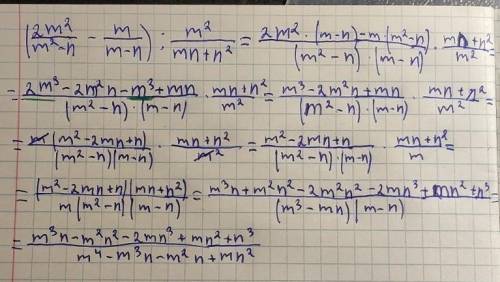 (2m²/(m²-n) - m/(m-n)) : m²/(mn+n²) = (2m²·(m-n)-m·(m²-n))/((m²-n)·(m-n)) · (mn+n²)/m² =
= (2m³-2m²n-m³+mn)/((m²-n)·(m-n)) · (mn+n²)/m² = (m³-2m²n+mn)/((m²-n)·(m-n)) · (mn+n²)/m² =
= m(m²-2mn+n)/((m²-n)(m-n)) · (mn+n²)/m² = (m²-2mn+n)/((m²-n)·(m-n)) · (mn+n²)/m =
= (m²-2mn+n)(mn+n²)/(m(m²-n)(m-n)) = (m³n+m²n²-2m²n²-2mn³+mn²+n³)/((m³-mn)(m-n)) =
= (m³n-m²n²-2mn³+mn²+n³)/(m⁴-m³n-m²n+mn²)